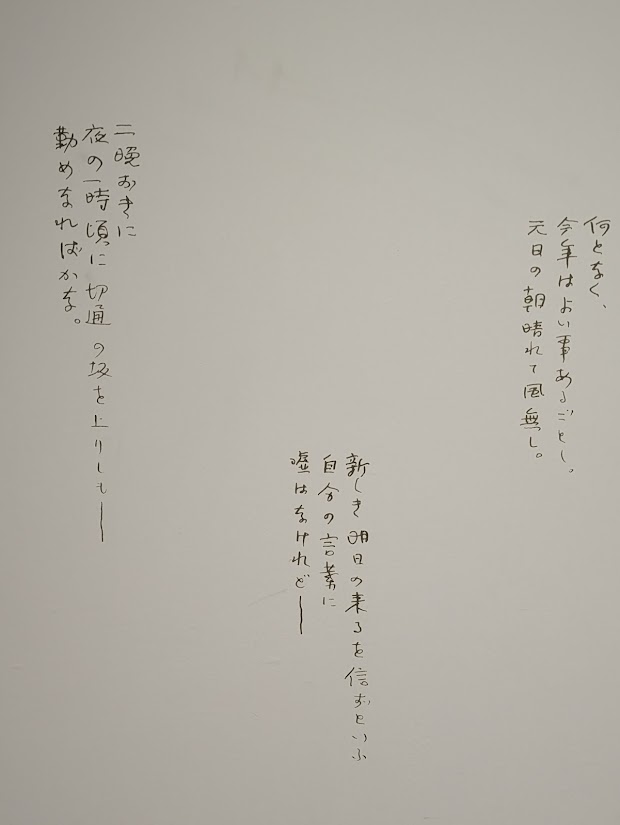 何となく、
今年はよい事あるごとし。
元日の朝晴れて風無し。
新しき明日の来るを信ずといふ
自分の言葉に
嘘はなけれど―
二晩おきに
夜の一時頃に切通の坂を上りしも―
勤めなればかな。